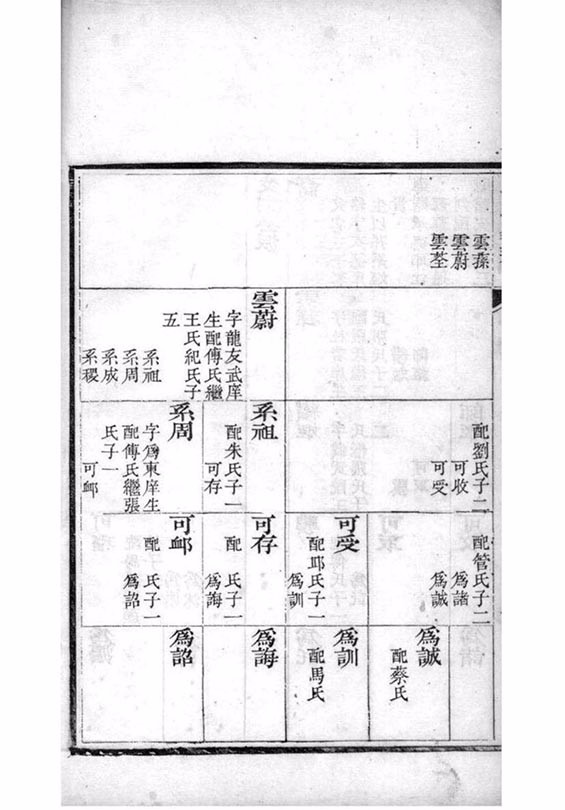 雲蓀
雲蔚
雲荃
雲蔚
字龍友武庠
生配傅氏繼
王氏紀氏子
五
系祖
系周
系成
系稷
配劉氏子二
可收
可受
系祖
配朱氏子一
可存
系周
字爲東庠生
配傅氏繼張
氏子一
可卹
配管氏子二
爲諸
爲誠
可受
配邱氏子一
爲訓
可存
配 氏子一
爲誨
可卹
配 氏子一
爲詔
爲誠
配蔡氏
爲訓
配馬氏
爲誨
爲詔